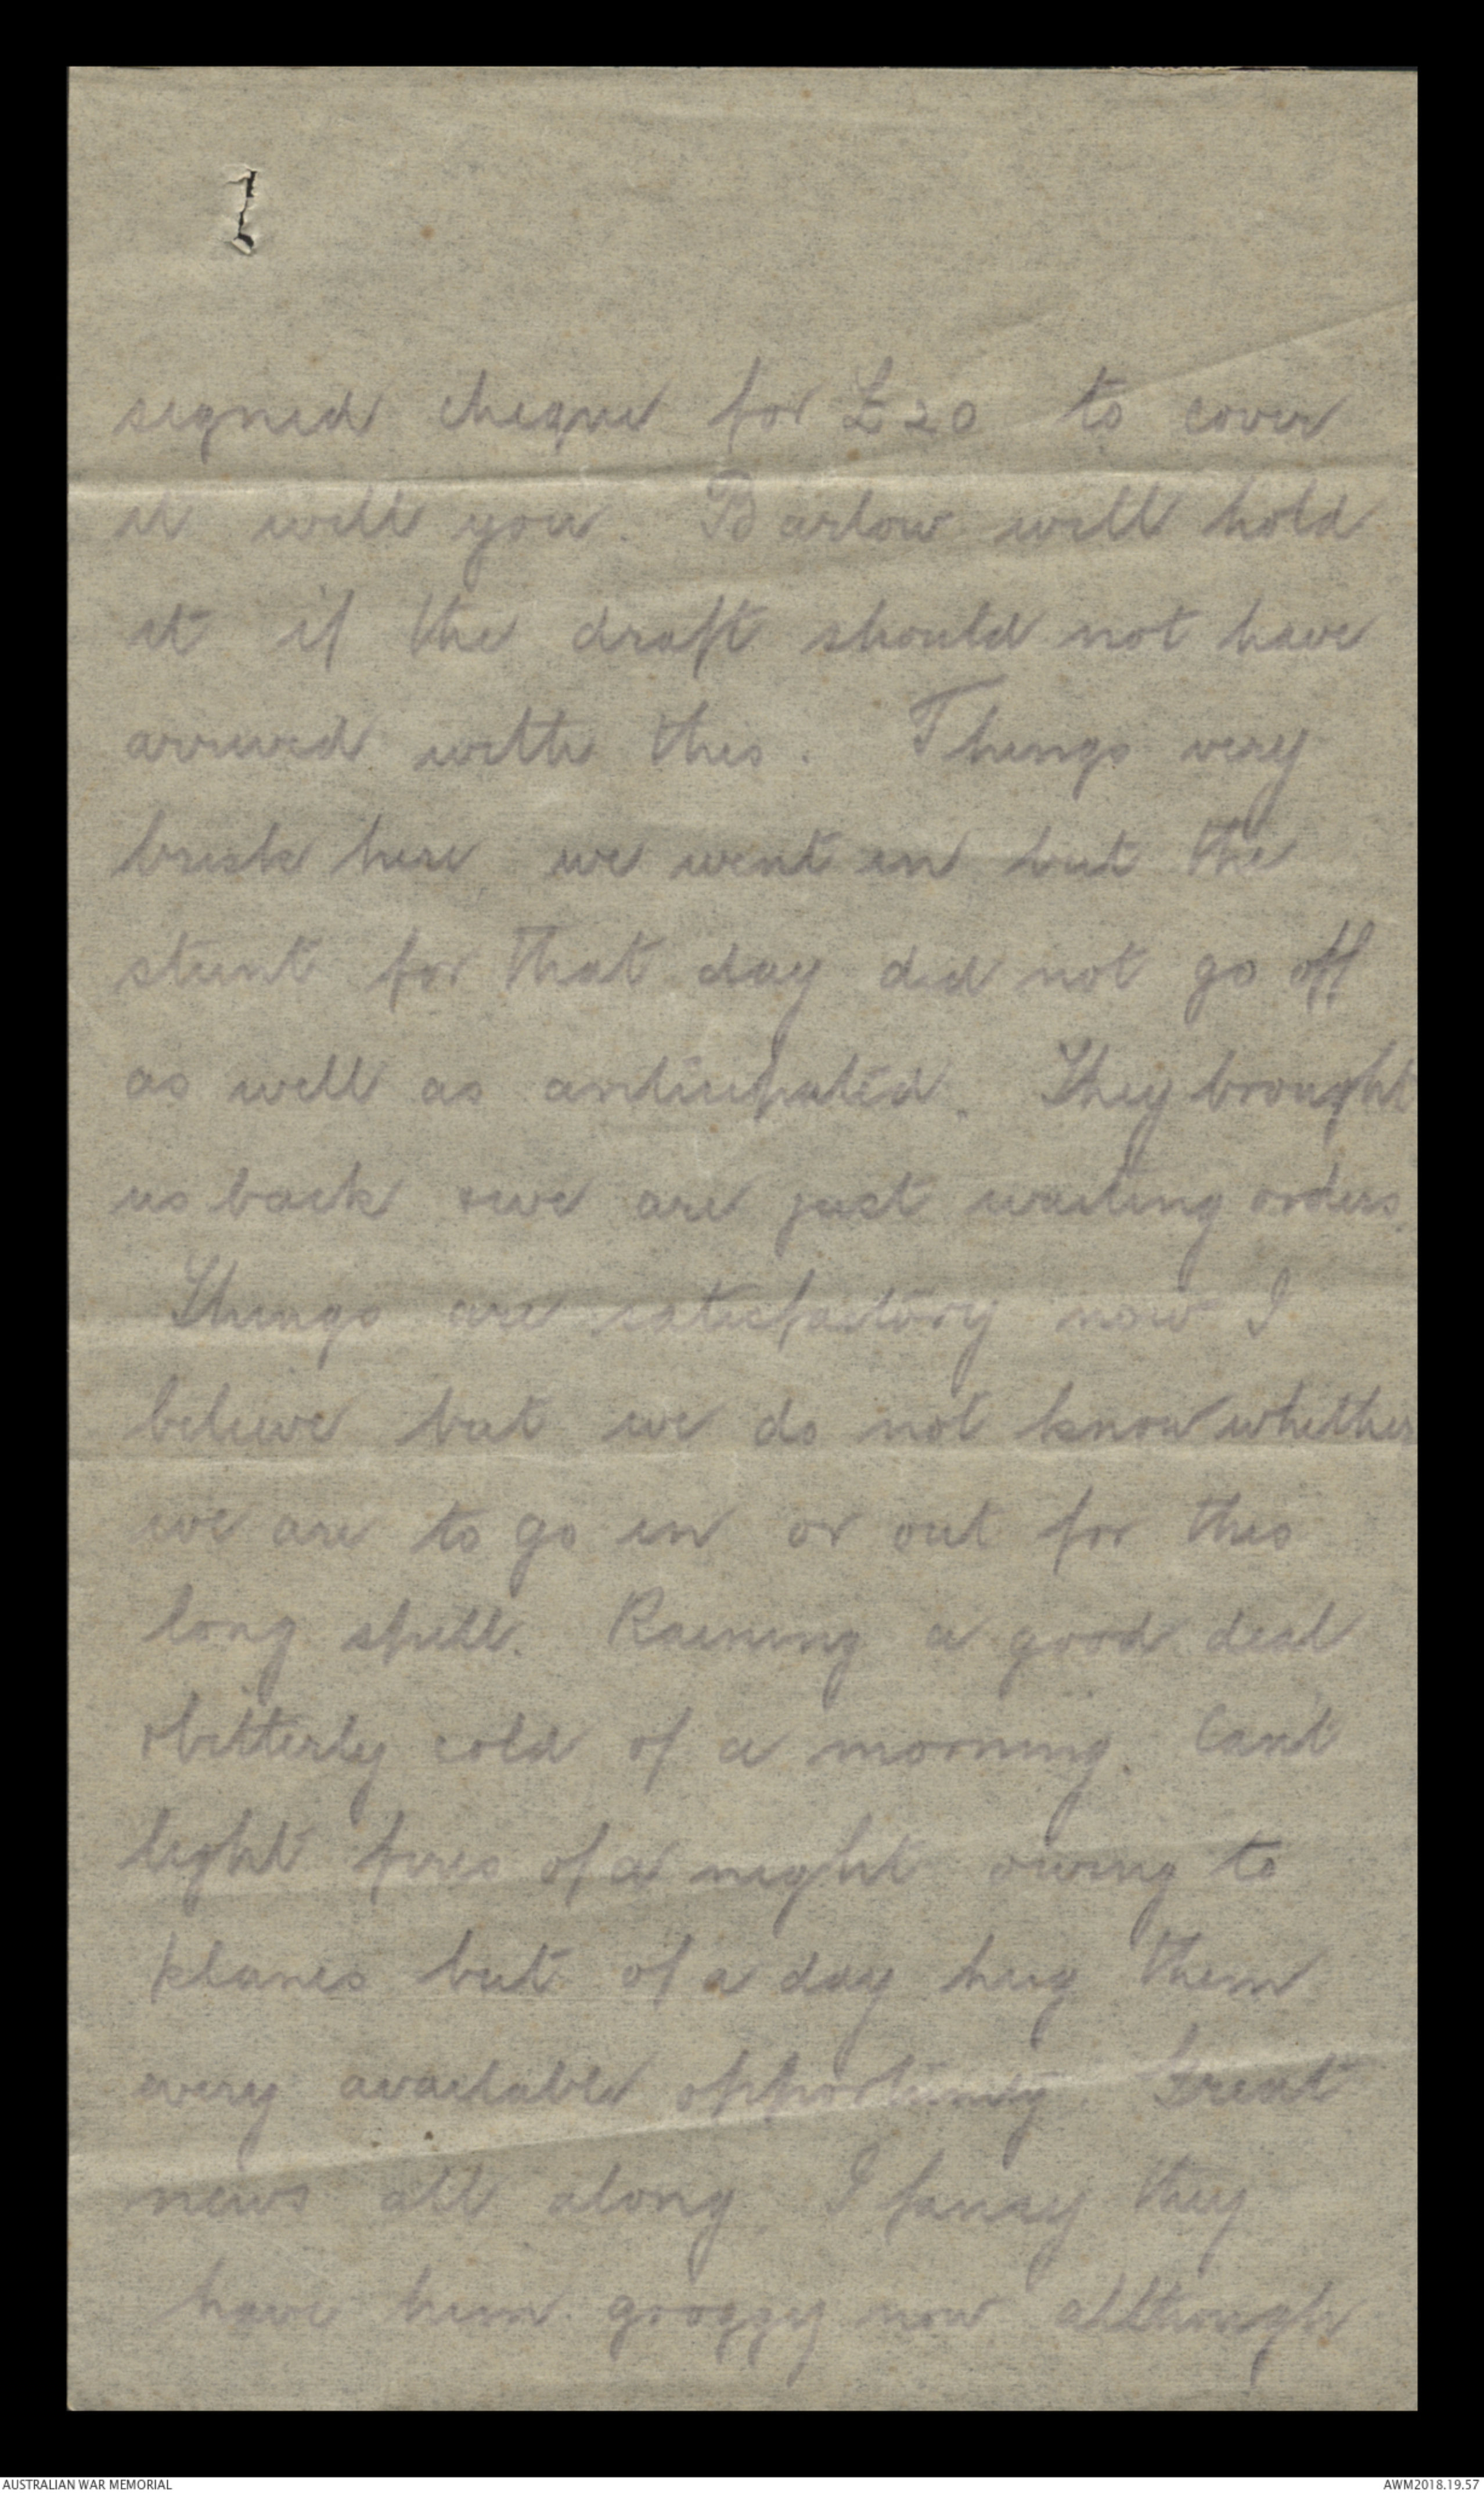 signed cheque for £20 to cover
it will you. Barlow will hold
it if the draft should not have
arrived with this. Things very
brisk here, we went in but the
stunt for that day did not go off
as well as anticipated. They brought
us back & we are just waiting orders.
Things are satisfactory now I
believe but we do not know whether
we are to go in or out for this
long spell. Raining a good deal
& bitterly cold of a morning. Can't
light fires of a night owing to
planes but of a day hug them
every available opportunity. Great
news all along. I fancy they
have him groggy now although
AUSTRALIAN WAR MEMORIAL
AWM2018.19.57